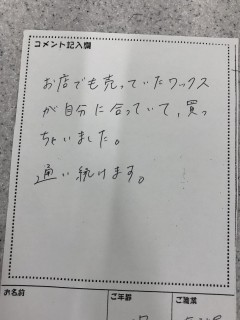 コメント記入欄
お店でも売っていたワックス
が自分に合っていて、買っ
ちゃいました。
通い続けます。
お名前 ご年齢 ご職業